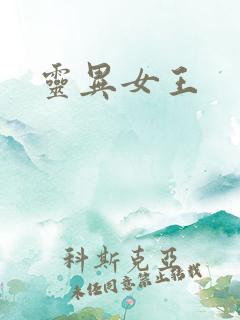 靈異女王
科斯克亞
未經同意禁止務找